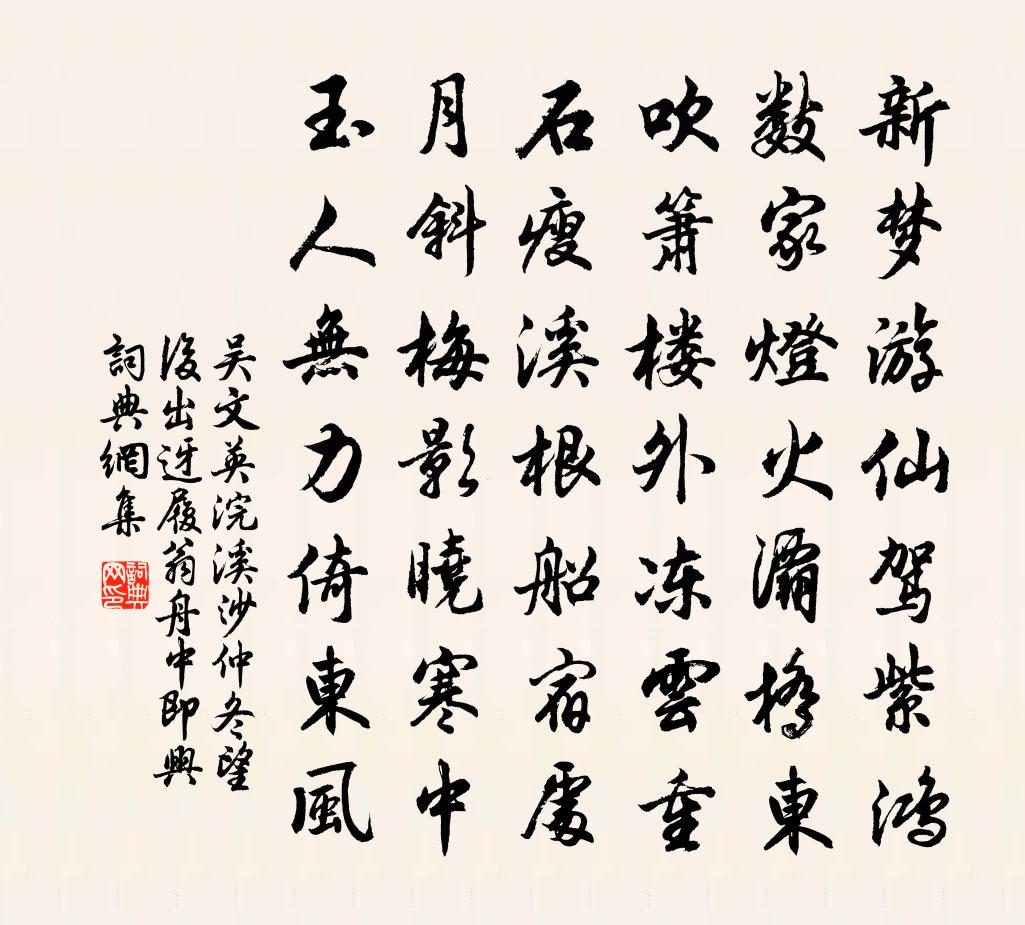 新梦游仙驾紫鸿
数家燈火灞橋東
吹簫楼外冻雲重
石瘦溪根船宿處
月斜梅影曉寒中
玉人無力倚東風
吴文英浣溪沙仲冬望
後出迓履翁舟中即興
詞典網集
詞典网印